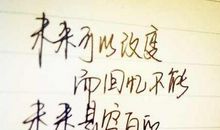 未来可以改变
而回忆不能
未来是空白的